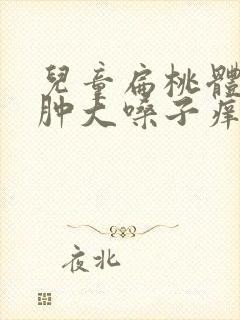 兒童扁桃體
肿大嗓子痒
夜北